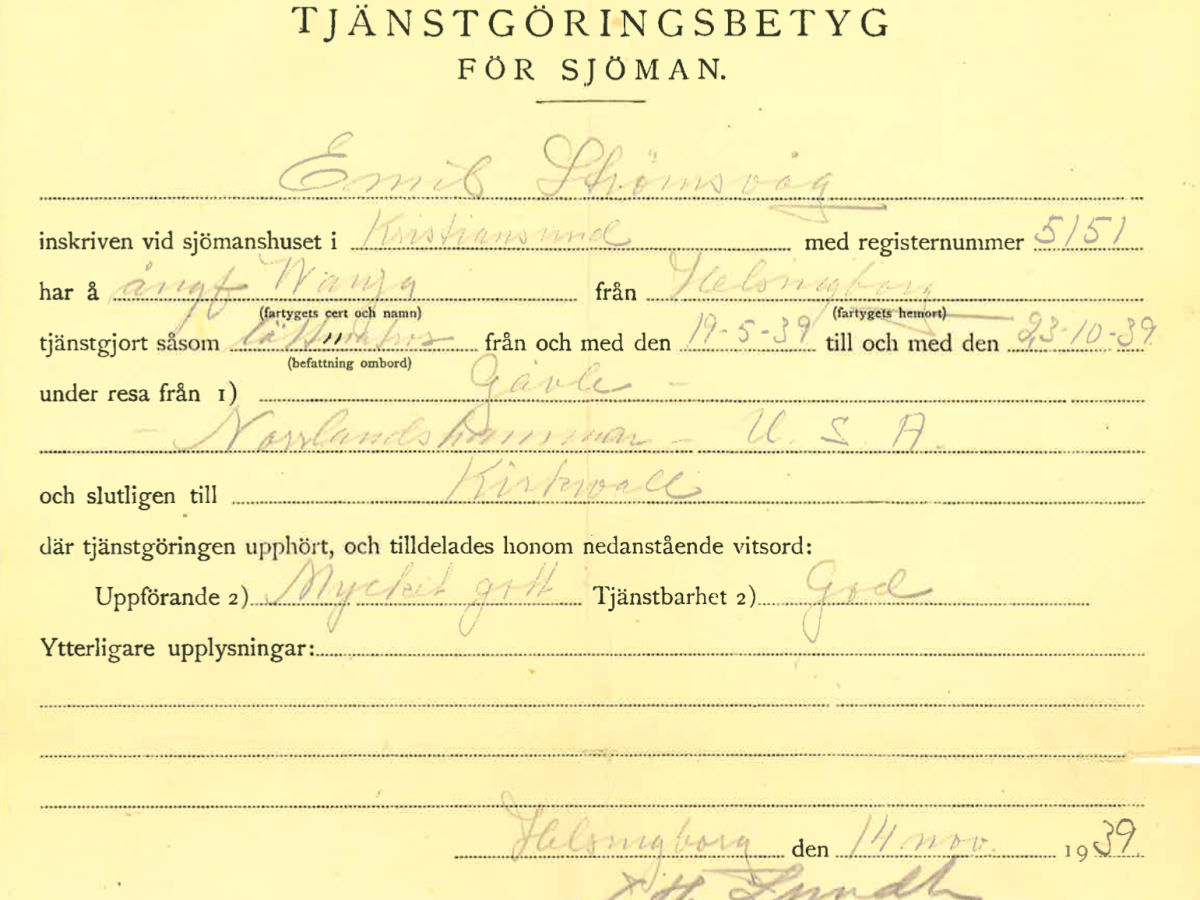 TJÄNSTGÖRINGSBETYG
FÖR SJÖMAN.
Emil Strömsvåg
inskriven vid sjömanshuset i Kristiansund med registernummer 5151
har å ångf Wanja från Helsingborg
(fartygets cert och namn) (fartygets hemort)
tjänstgjort såsom lättmatros från och med den 19-5-39 till och med den 23-10-39
(befattning ombord)
under resa från 1) Gävle -
- Norrlandshammar - U. S. A.
och slutligen till Kirkwall
där tjänstgöringen upphört, och tilldelades honom nedanstående vitsord:
Uppförande 2) Mycket gott Tjänstbarhet 2) God
Ytterligare upplysningar:
Helsingborg den 14 nov. 1939.
Lundh